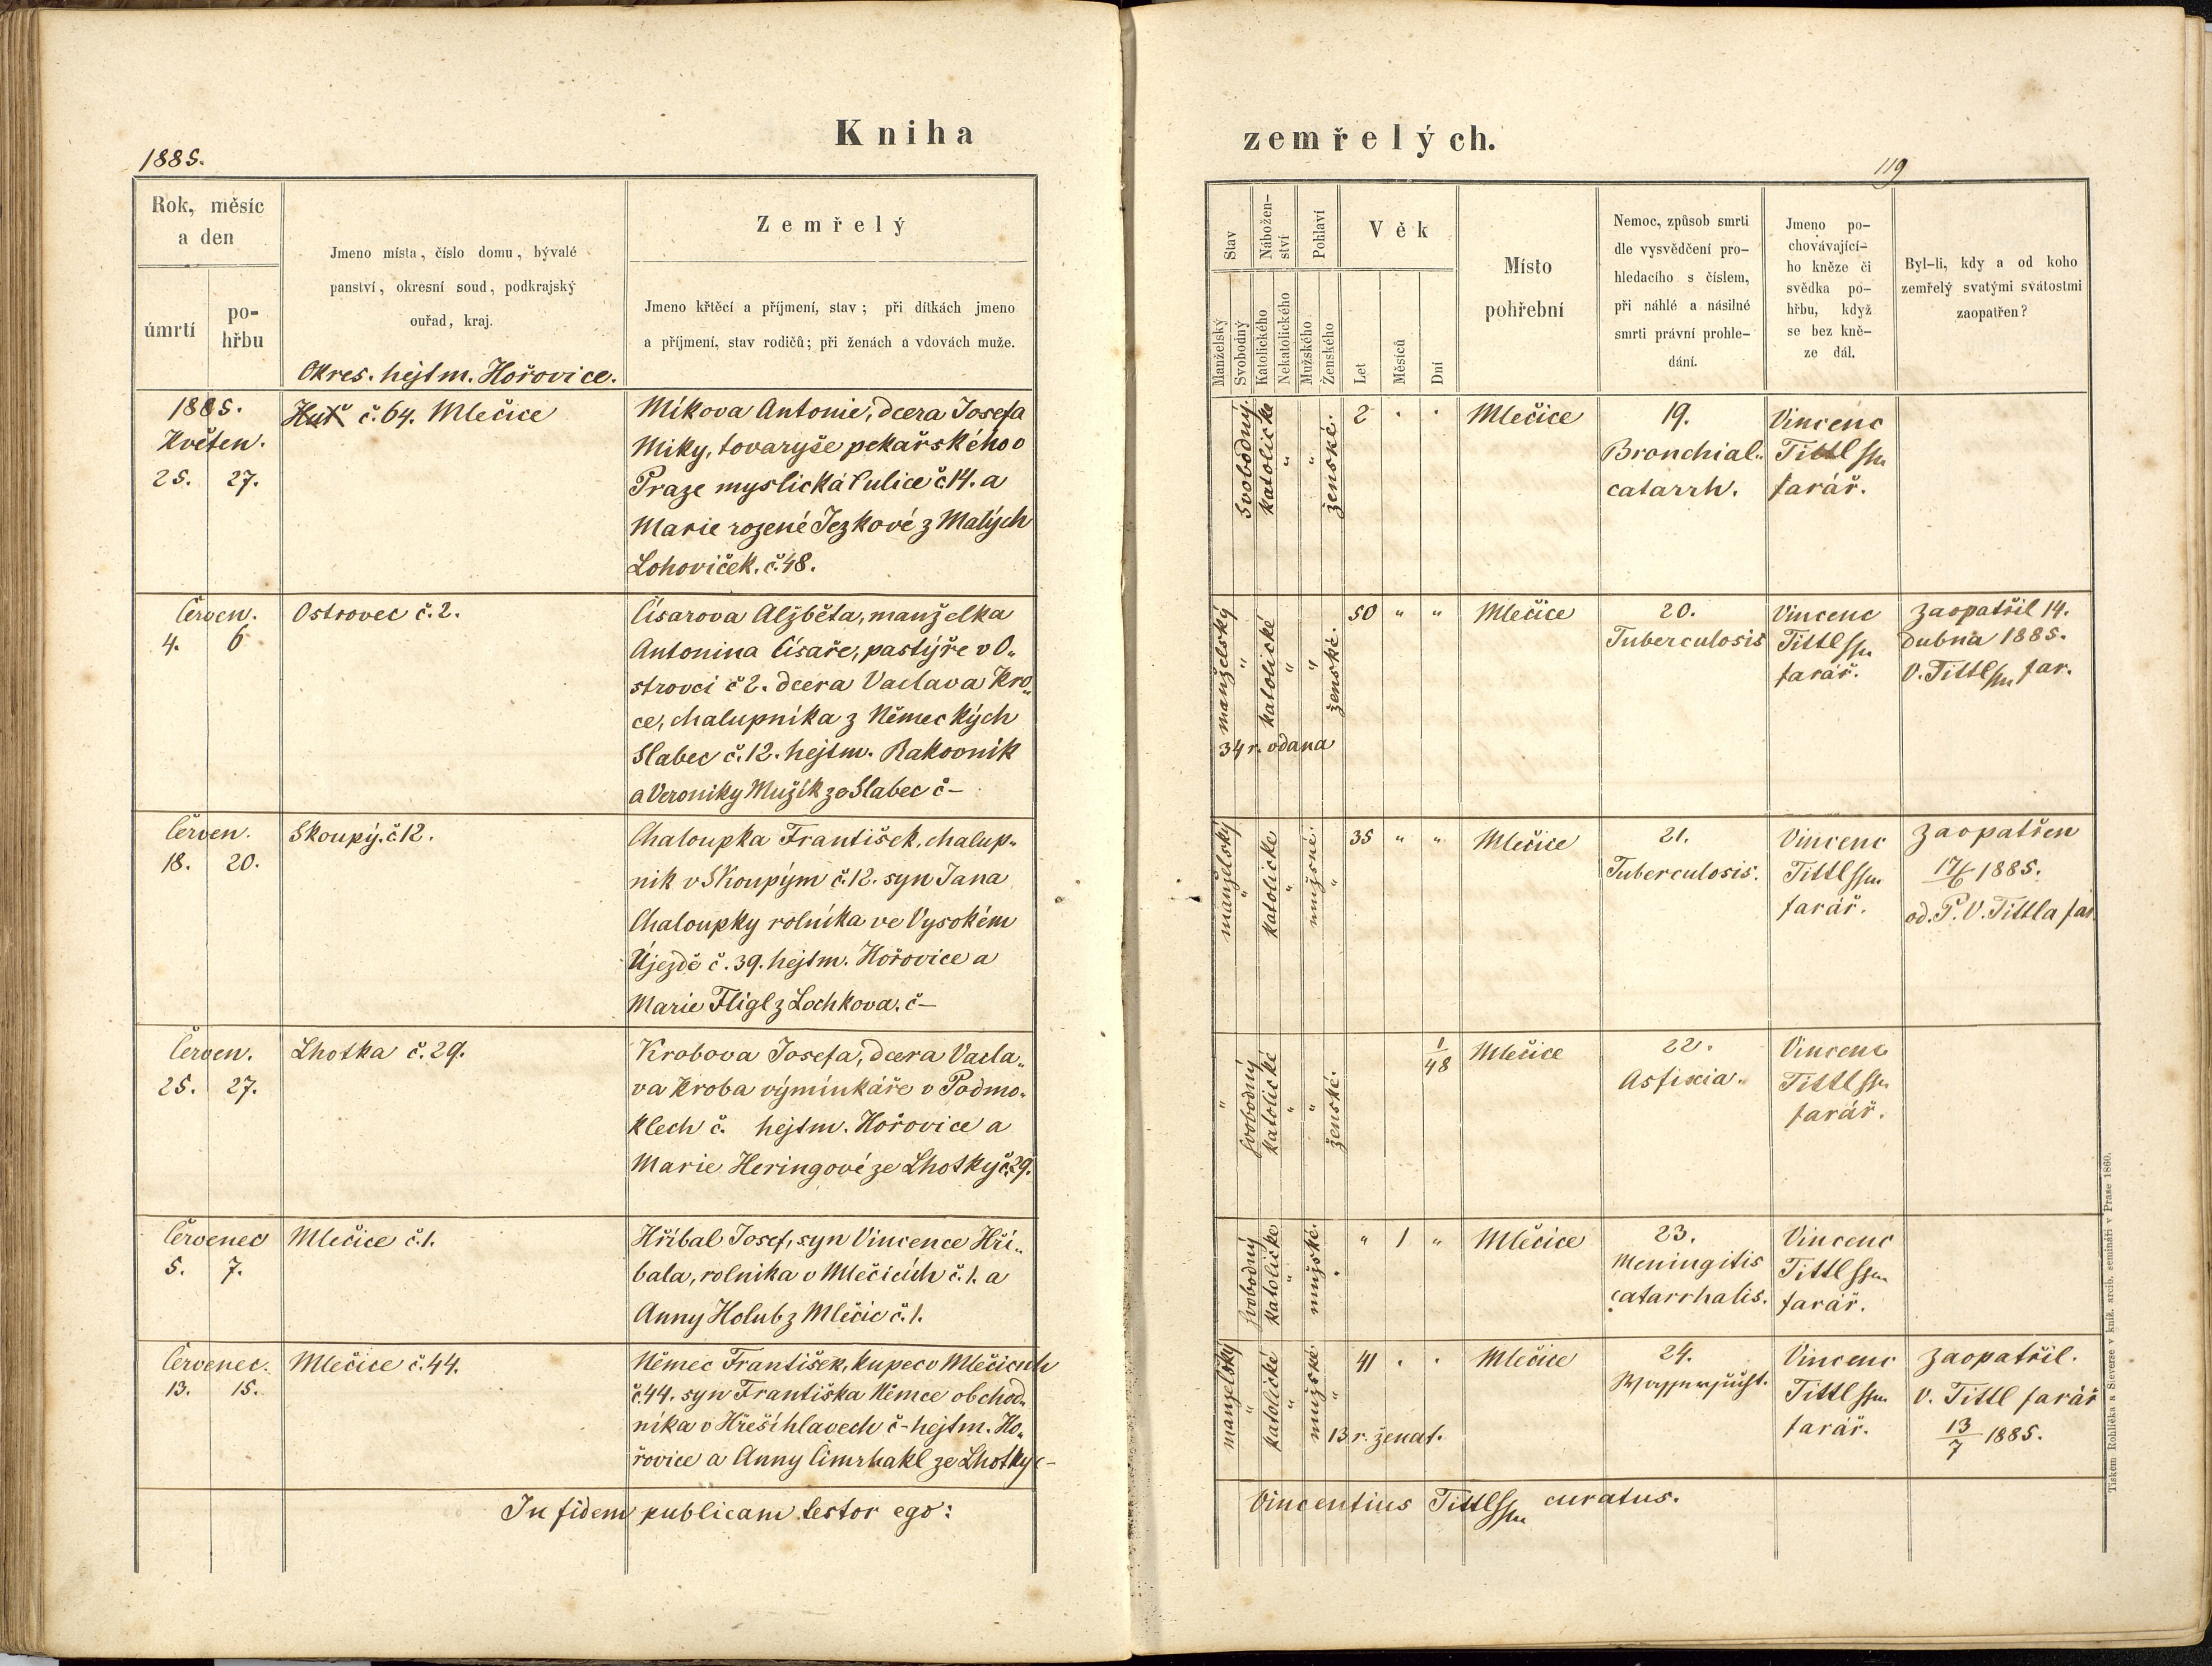 Kniha
1885.
Rok, měsíc
a den
úmrtí
po-
hřbu
Jmeno místa, číslo domu, bývalé
panství, okresní soud, podkrajský
ouřad, kraj.
Okres. hejtm. Hořovice.
Zemřelý
Jmeno křtěcí a příjmení, stav; při dítkách jmeno
a příjmení, stav rodičů; při ženách a vdovách muže.
1885.
Květen.
25. 27.
č. 64. Mlečice
Míkova Antonie, dcera Josefa
Míky, tovaryše pekařského v
Praze myslická ulice č 14. a
Marie rozené Jezkové z Malých
Lohoviček. č. 48.
Červen.
4. 6
Ostrovec č. 2.
Císarova Alžběta, manželka
Antonína Císaře, pastýře v O„
strovci č 2. dcera Vaclava Kro„
ce, chalupníka z Německých
Slabec č. 12. hejtm. Rakovník
a Veroniky Mužík ze Slabec č –
Červen.
18. 20.
Skoupý. č 12.
Chaloupka František, chalup„
nik v Skoupým č. 12. syn Jana
Chaloupky rolníka ve Vysokém
Újezdě č. 39. hejtm. Hořovice a
Marie Fligl z Lochkova. č –
Červen.
25. 27.
Lhotka č. 29.
Krobova Josefa, dcera Vacla„
va Kroba výminkáře v Podmo„
klech č. hejtm. Hořovice a
Marie Heringové ze Lhotky č. 29.
Červenec
5. 7.
Mlečice č. 1.
Hříbal Josef, syn Vincence Hří„
bala, rolníka v Mlečicích č. 1. a
Anny Holub z Mlečic č. 1.
Červenec.
13. 15.
Mlečice č. 44.
Němec František, kupec v Mlečicích
č. 44. syn Františka Němce obchod„
níka v Hřešihlavech č – hejtm. Ho„
řovice a Anny Čimrhakl ze Lhotky č –
In fidem publicam testor ego:
zemřelých.
119
Stav
Manželský
Svobodný
Nábožen-
ství
Katolického
Nekatolického
Pohlaví
Mužského
Ženského
Věk
Let
Měsíců
Dní
Místo
pohřební
Nemoc, způsob smrti
dle vysvědčení pro-
hledacího s číslem,
při náhlé a násilné
smrti právní prohle-
dání.
Jmeno po-
chovávající-
ho kněze či
svědka po-
hřbu, když
se bez kně-
ze dál.
Byl-li, kdy a od koho
zemřelý svatými svátostmi
zaopatřen?
svobodný.
katolické
"
"
ženské.
2 . .
Mlečice
19.
Bronchial„
catarrh.
Vincenc
Tittl
farář.
manželský
"
katolické
"
"
ženské.
34 r. vdana
50 " "
Mlečice
20.
Tuberculosis
Vincenc
Tittl
farář.
Zaopatřil 14.
Dubna 1885.
V. Tittl far.
manželský
"
katolické
"
mužské.
"
35 " "
Mlečice
21.
Tuberculosis.
Vincenc
Tittl
farář.
Zaopatřen
17/6 1885.
od. P. V. Tittla far.
"
svobodný
katolické
"
"
ženské.
1/48
Mlečice
22.
Asfixia.
Vincenc
Tittl
farář.
svobodný
katolické
"
mužské.
" 1 "
Mlečice
23.
Meningitis
catarrhalis.
Vincenc
Tittl
farář.
manželský
"
katolické
"
mužské
"
13 r. ženat.
41 . .
Mlečice
24.
Vincenc
Tittl
farář.
Zaopatřil.
V. Tittl farář
13/7 1885.
Vincentius Tittl curatus.
Tiskem Rohlíčka a Sieverse v kníž. arcib. semináři v Praze 1860.